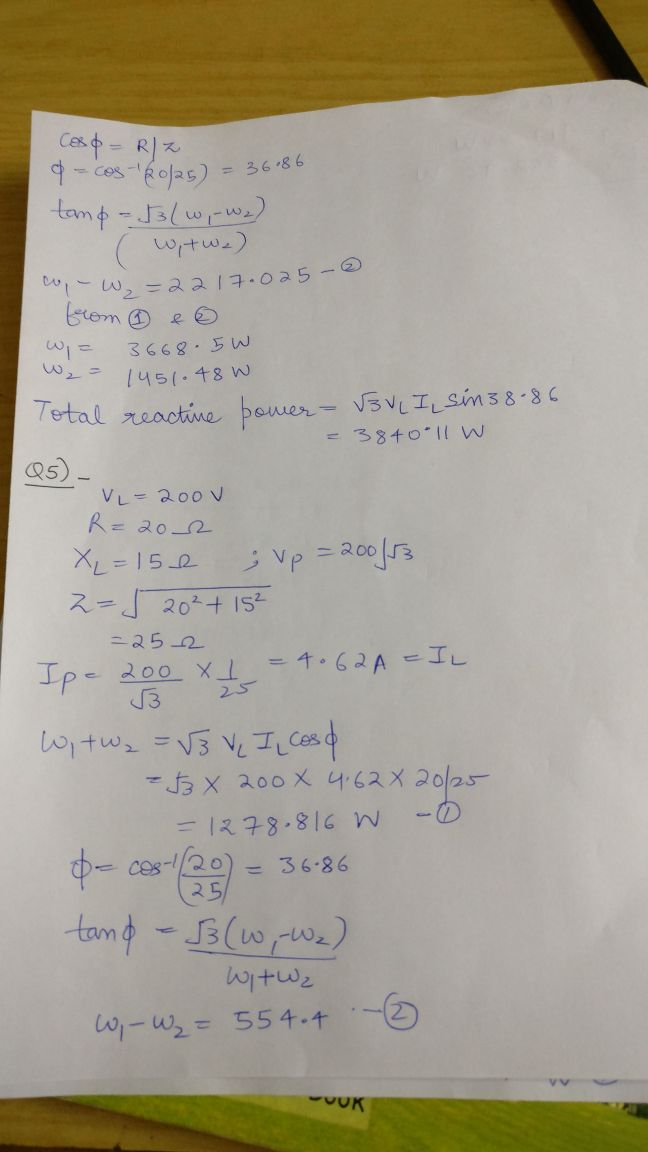 cosϕ = R/z
ϕ = cos⁻¹(20/25) = 36.86
tanϕ = √3(w₁-w₂)
(w₁+w₂)
w₁ - w₂ = 2217.025 - ②
from ① & ②
w₁ = 3668.5W
w₂ = 1451.48W
Total reactine power = √3 V_L I_L sin38.86
= 3840.11 W
Q5) -
V_L = 200 V
R = 20 Ω
X_L = 15 Ω ; Vp = 200/√3
Z = √20² + 15²
= 25 Ω
Ip = 200/√3 × 1/25 = 4.62A = I_L
w₁+w₂ = √3 V_L I_L cosϕ
= √3 × 200 × 4.62 × 20/25
= 1278.816 W - ①
ϕ = cos⁻¹(20/25) = 36.86
tanϕ = √3(w₁-w₂)
w₁+w₂
w₁-w₂ = 554.4 - ②